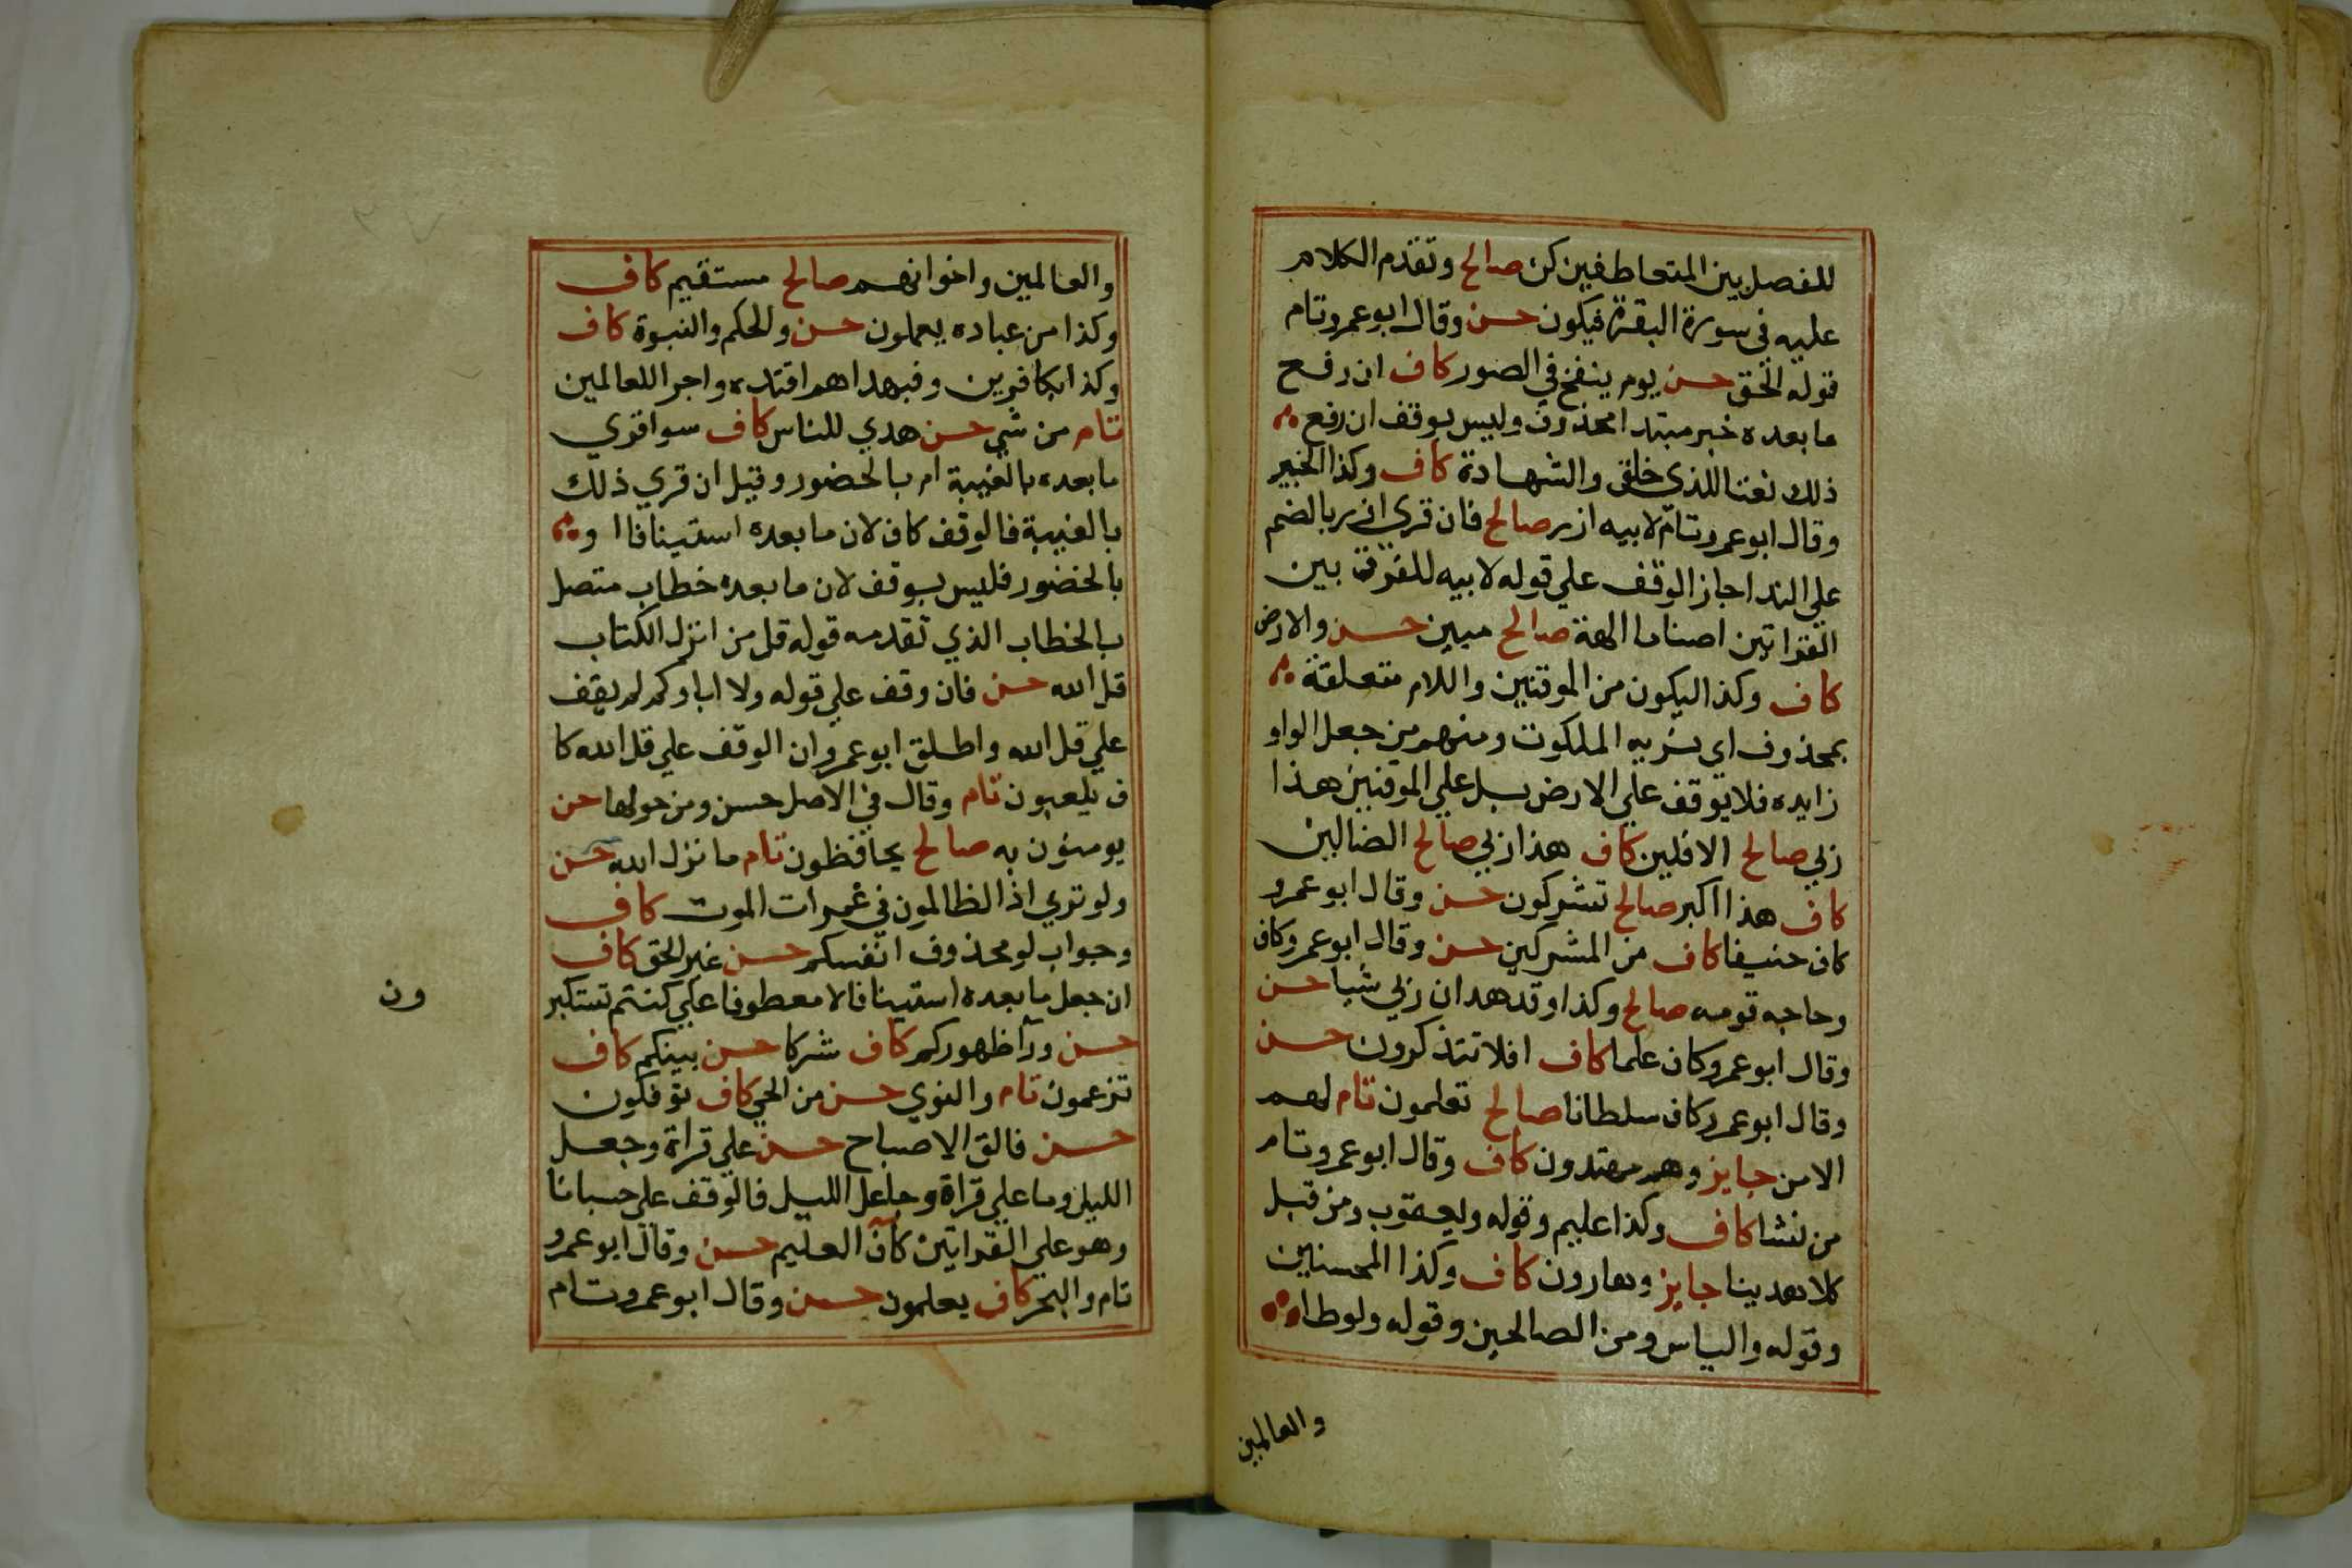 للفصل بين المتعاطفين كن صالح وتقدم الكلام
عليه في سورة البقرة فيكون حسن وقال ابو عمرو تام
قوله الحق حسن يوم ينفخ في الصور كاف ان رفع
ما بعده خبر مبتدا محذوف وليس بوقف ان رفع
ذلك نعتا للذي خلق والشهادة كاف وكذا الخبير
وقال ابو عمرو تام لابيه ازر صالح فان قري ازر بالضم
علي الندا جاز الوقف علي قوله لابيه للفرق بين
القراتين اصناما الهة صالح مبين حسن والارض
كاف وكذا ليكون من الموقنين واللام متعلقة
بمحذوف اي نريه الملكوت ومنهم من جعل الواو
زايده فلا يوقف علي الارض بل علي الموقنين هذا
ربي صالح الافلين كاف هذا ربي صالح الضالين
كاف هذا اكبر صالح تشركون حسن وقال ابو عمرو
كاف حنيفا كاف من المشركين حسن وقال ابو عمرو كاف
وحاجه قومه صالح وكذا وقد هدان ربي شيا حسن
وقال ابو عمرو كاف علما كاف افلا تتذكرون حسن
وقال ابو عمرو كاف سلطانا صالح تعلمون تام لهم
الامن جايز وهم مهتدون كاف وقال ابو عمرو تام
من نشا كاف وكذا عليم وقوله ويعقوب ومن قبل
كلا هدينا جايز وهارون كاف وكذا المحسنين
وقوله والياس ومن الصالحين وقوله ولوطا
والعالمين
والعالمين واخوانهم صالح مستقيم كاف
وكذا من عباده يعملون حسن والحكم والنبوة كاف
وكذا بكافرين وفبهداهم اقتده واجرا للعالمين
تام من شي حسن هدي للناس كاف سوا قري
ما بعده بالغيبة ام بالحضور وقيل ان قري ذلك
بالغيبة فالوقف كاف لان ما بعده استينافا او
بالحضور فليس بوقف لان ما بعده خطاب متصل
بالخطاب الذي تقدمه قوله قل من انزل الكتاب
قل الله حسن فان وقف علي قوله ولا اباوكم لم يقف
علي قل الله واطلق ابو عمرو ان الوقف علي قل الله كا
ف يلعبون تام وقال في الاصل حسن ومن حولها حسن
يومنون به صالح يحافظون تام ما نزل الله حسن
ولو تري اذ الظالمون في غمرات الموت كاف
وجواب لو محذوف انفسكم حسن غير الحق كاف
ان جعل ما بعده استينافا لا معطوفا علي كنتم تستكبر
ون
حسن ورآ ظهوركم كاف شركا حسن بينكم كاف
تزعمون تام والنوي حسن من الحي كاف توفكون
حسن فالق الاصباح حسن علي قراة وجعل
الليل وما علي قراة وجاعل الليل فالوقف علي حسبانا
وهو علي القراتين كاف العليم حسن وقال ابو عمرو
تام والبحر كاف يعلمون حسن وقال ابو عمرو تام